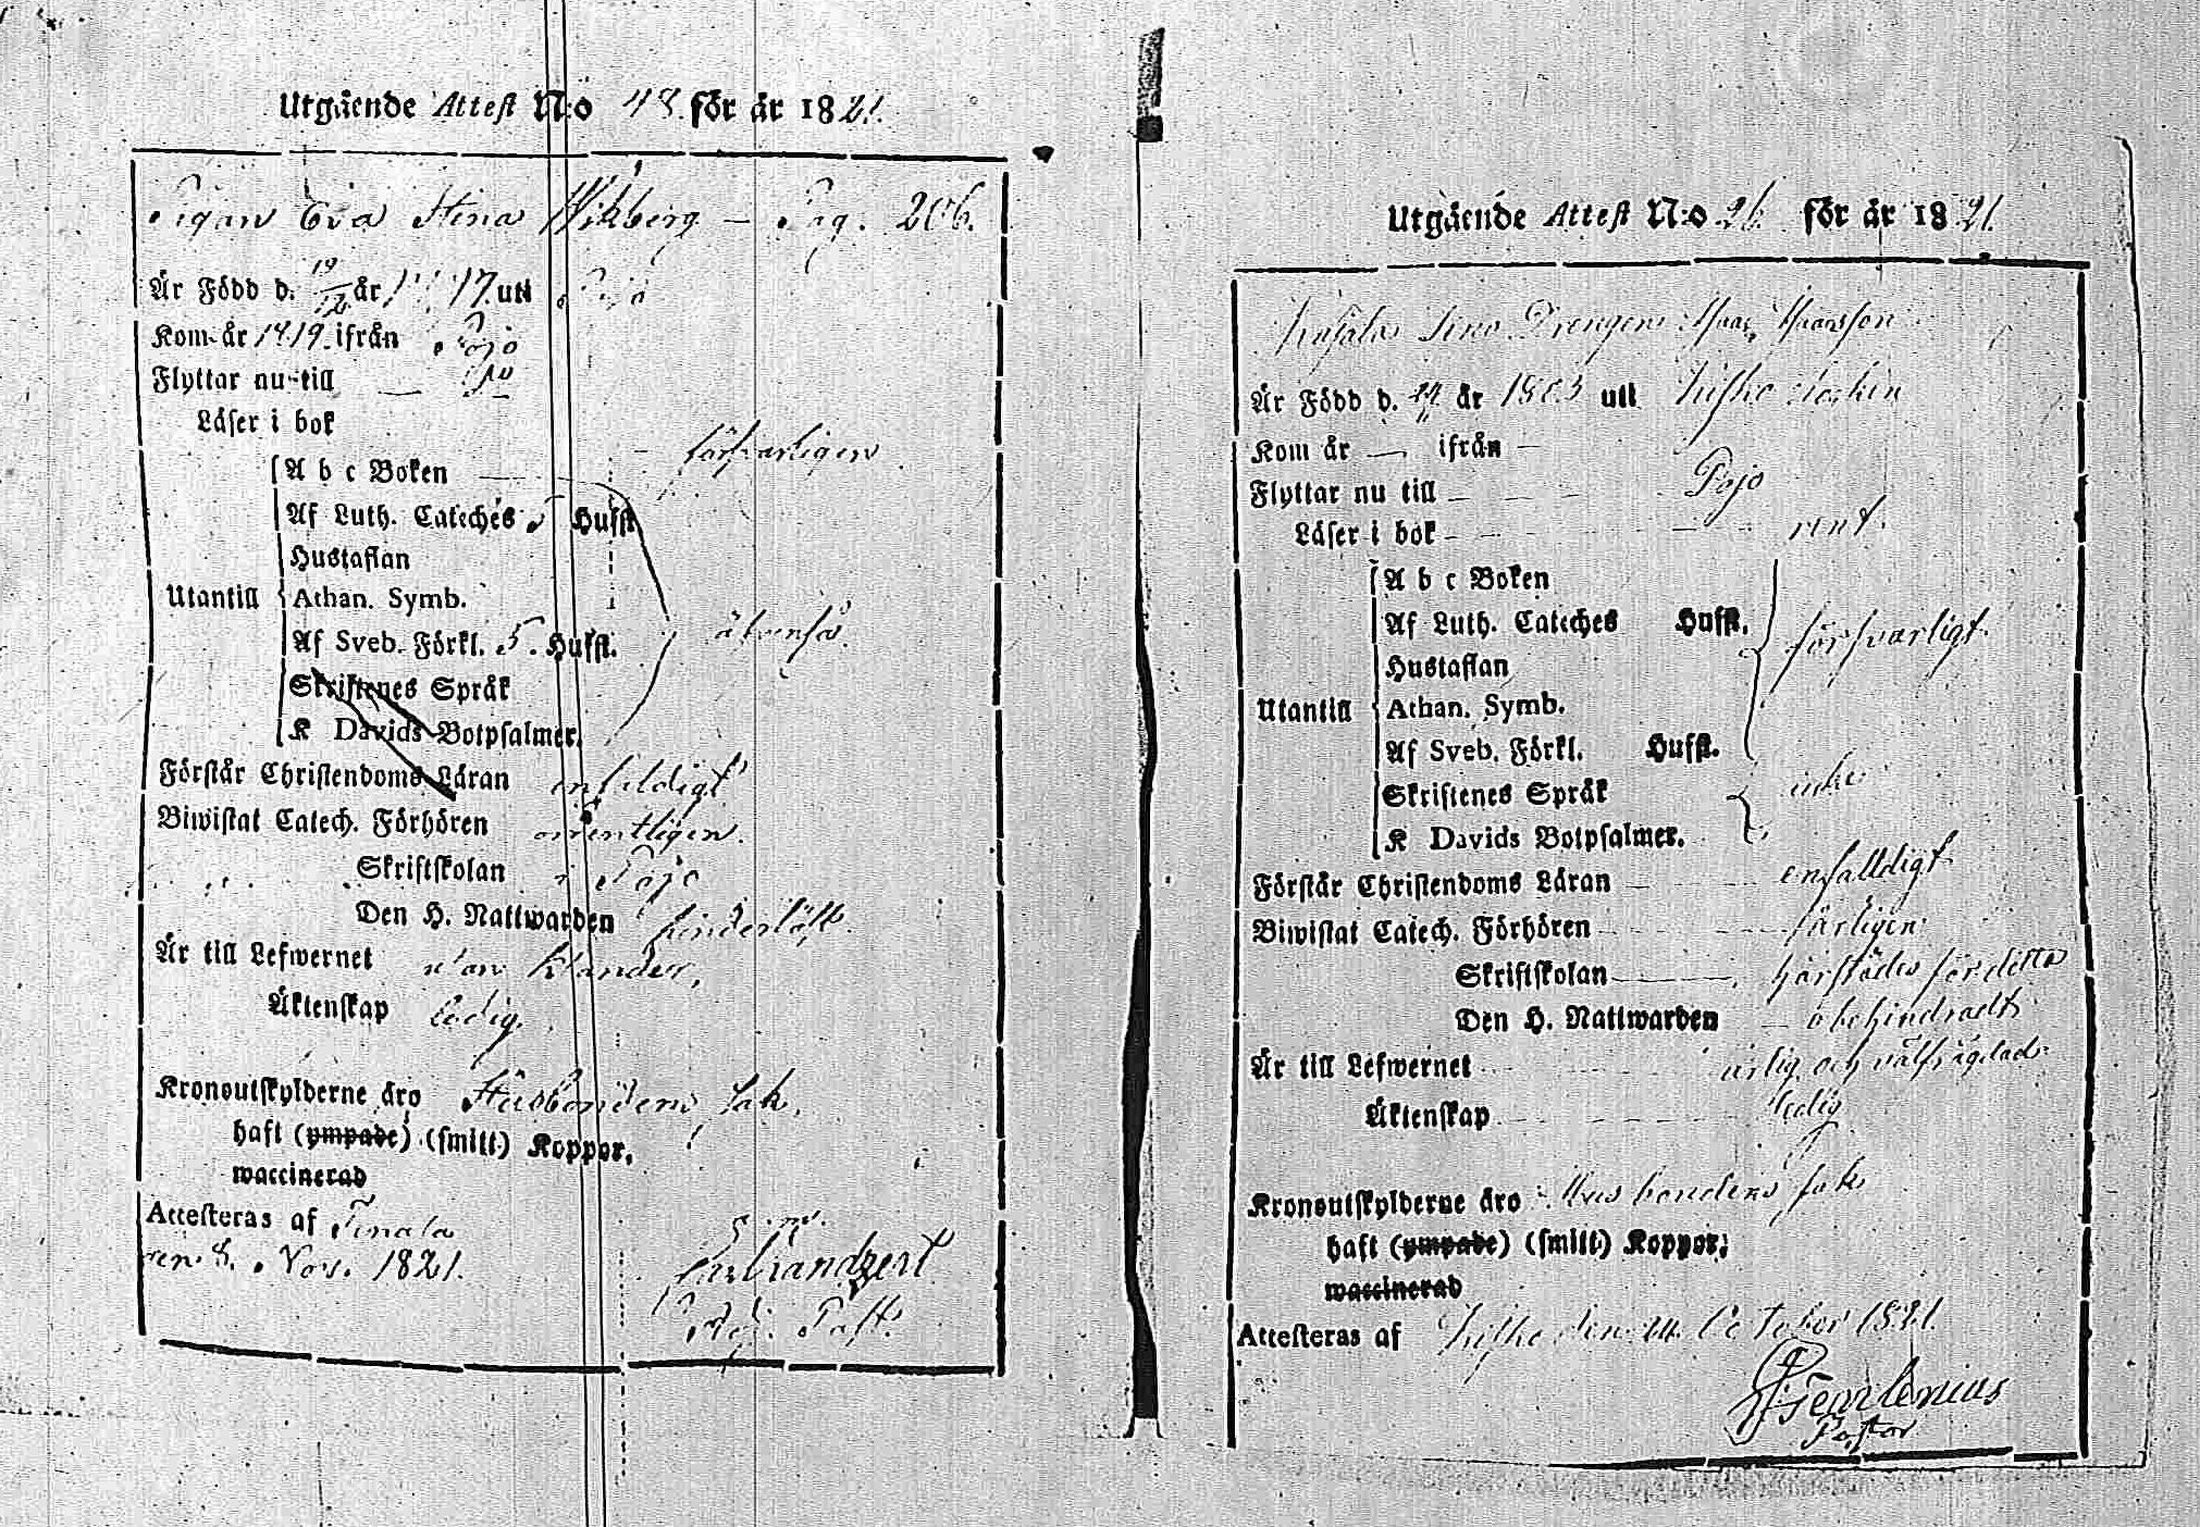 Utgående Attest N:o 48. för år 1821.
Pigan Eva Stina Wikberg – Pag. 206.
Är Född d. 19/12 år 17 uti Pojo
Kom år 1819. ifrån Pojo
Flyttar nu till —
Läser i bok
försvarligen
A b c Boken
Af Luth. Catechès 5 Hufst.
Hustaflan
Utantill Athan. Symb.
Af Sveb. Förkl. 5. Hufst.
äfvenså
Skriftenes Språk
K Davids Botpsalmer.
Förstår Christendoms Läran enfeldigt
Biwistat Catech. Förhören ordentligen.
Skriftskolan i Pojo
Den H. Nattwarden hinderlöst.
Är till Lefwernet utan klander,
Äktenskap ledig.
Kronoutskylderne äro Husbondens sak.
haft (ympade) (smitt.) Koppor.
waccinerad
Attesteras af Tenala
den 8. Nov. 1821.
Past.
Utgående Attest N:o 26. för år 1821.
Drengen Isaksson
Är Född d. år 1803 uti Kisko Socken
Kom år — ifrån —
Flyttar nu till Pojo
Läser i bok rent.
A b c Boken
Af Luth. Catechès Hufst.
försvarligt.
Hustaflan
Utantill Athan. Symb.
Af Sveb. Förkl. Hufst.
Skriftenes Språk icke
K Davids Botpsalmer.
Förstår Christendoms Läran — enfalldigt
Biwistat Catech. Förhören årligen
Skriftskolan härstädes för detta
Den H. Nattwarden — obehindradt
Är till Lefwernet ärlig och välfrägdad
Äktenskap ledig
Kronoutskylderne äro Husbondens sak
haft (ympade) (smitt.) Koppor.
waccinerad
Attesteras af Kisko den 14. October 1821.
Pastor